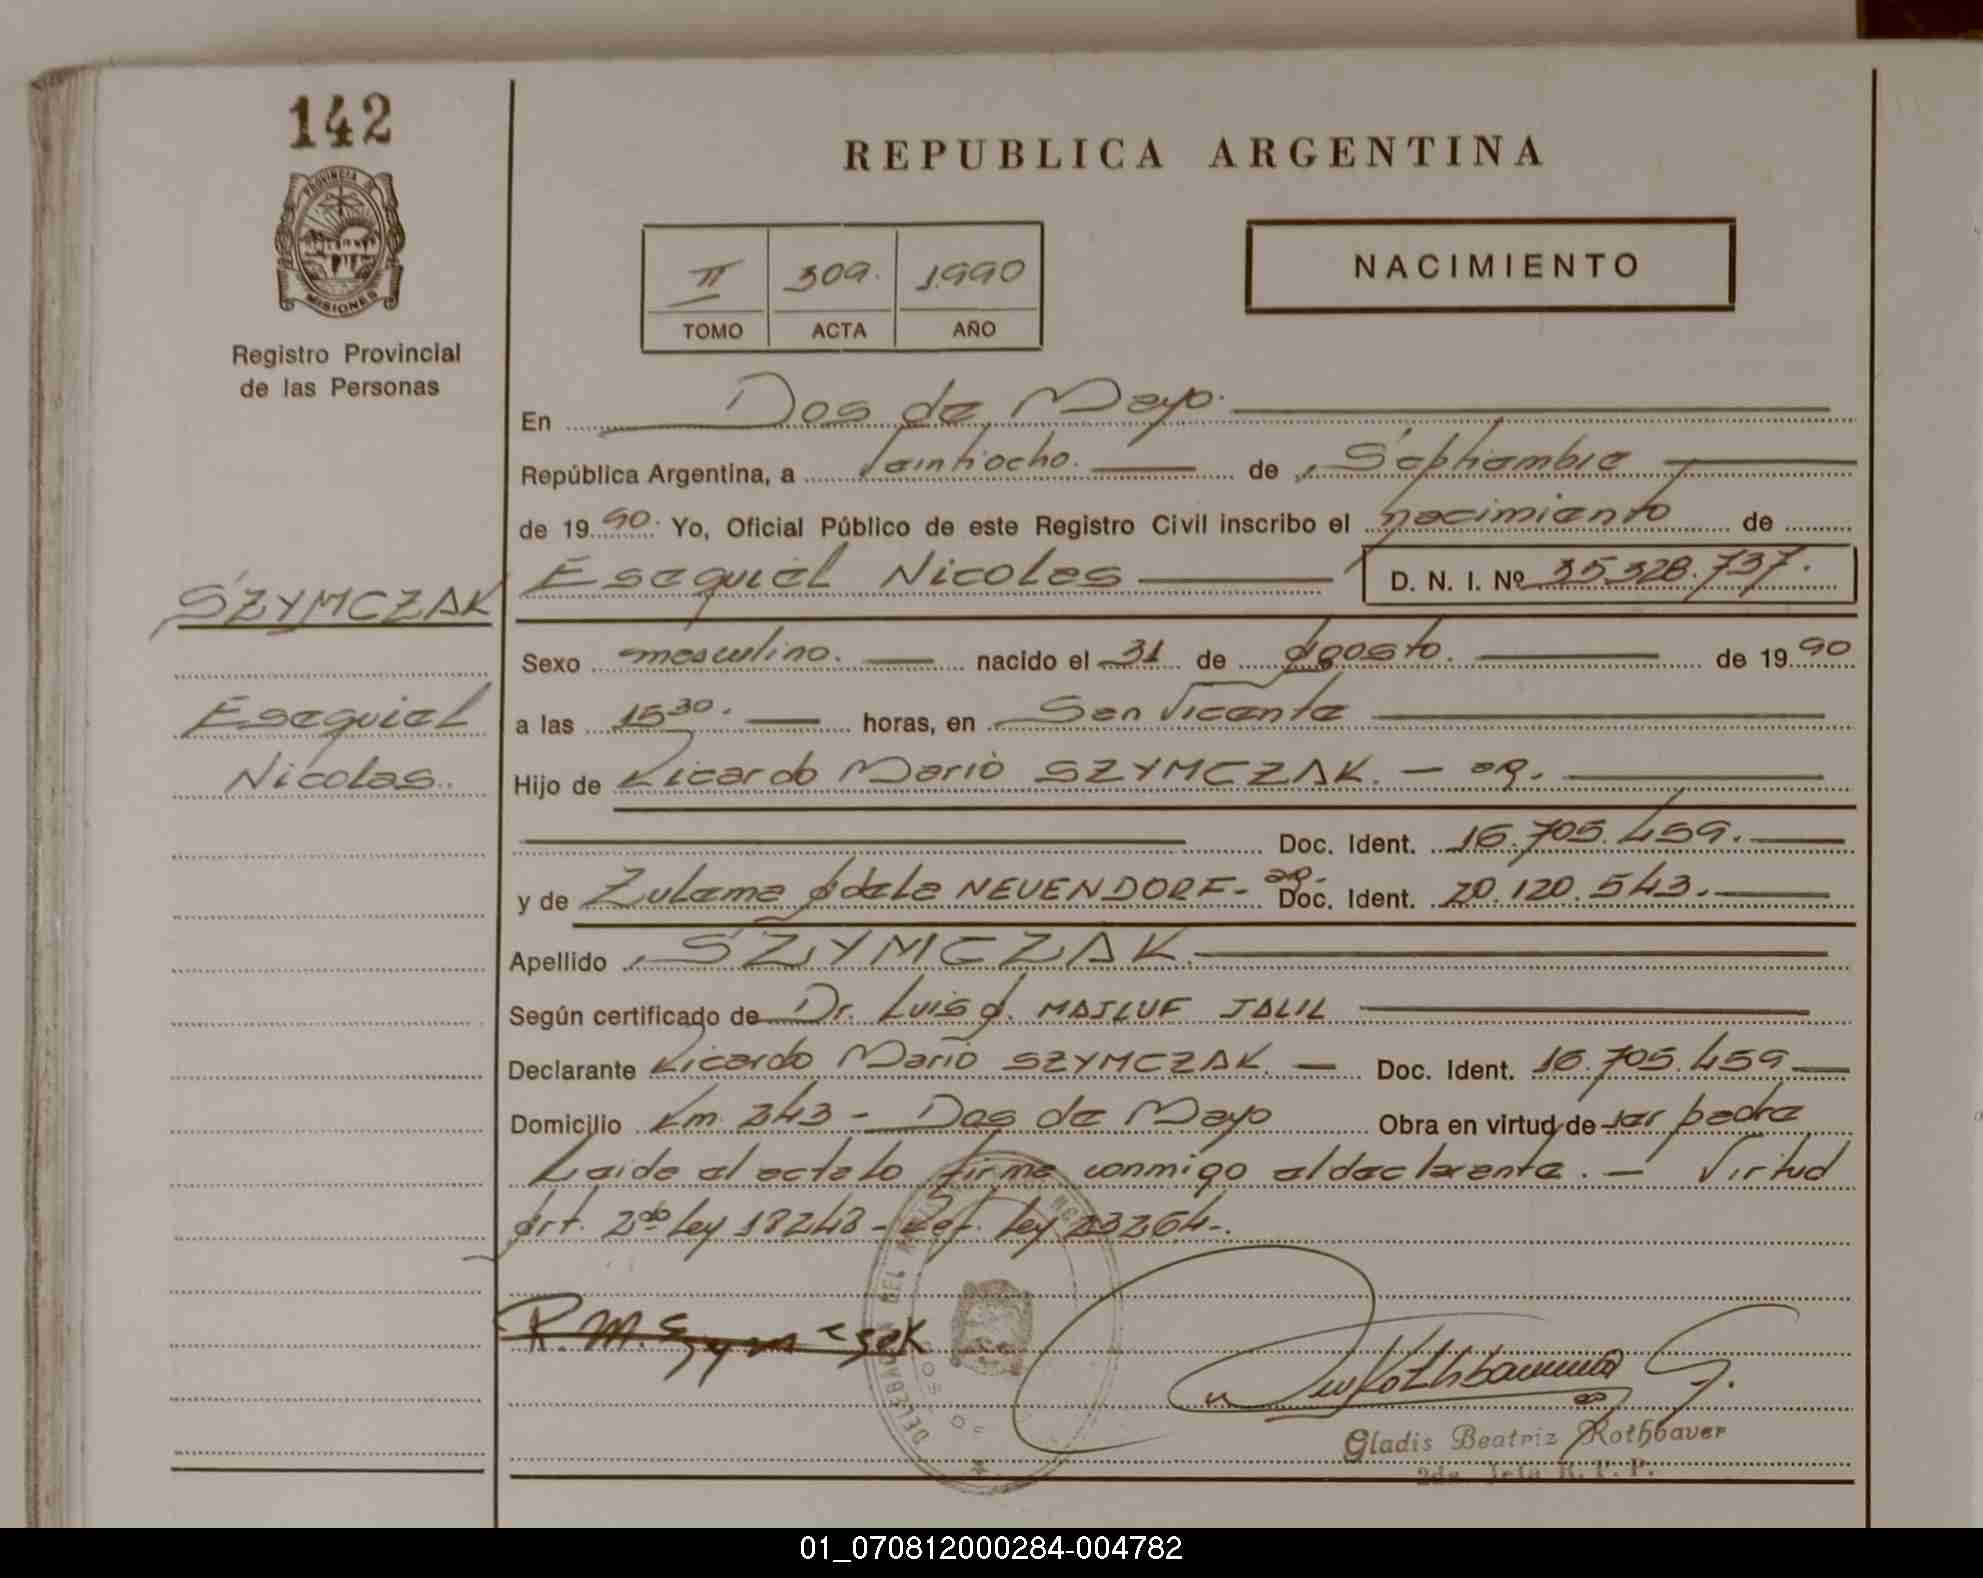 142
PROVINCIA DE
MISIONES
Registro Provincial
de las Personas
SZYMCZAK
Esequiel
Nicolas.
REPUBLICA ARGENTINA
II 309. 1990
TOMO ACTA AÑO
NACIMIENTO
En Dos de Mayo.
República Argentina, a Veintiocho. de Septiembre
de 1990. Yo, Oficial Público de este Registro Civil inscribo el nacimiento de
Esequiel Nicolas D. N. I. Nº 35.328.737.
Sexo masculino. nacido el 31 de Agosto. de 1990
a las 15 30. horas, en San Vicente
Hijo de Ricardo Mario SZYMCZAK. - ar.
Doc. Ident. 16.705.459.
y de Zulema Adela NEUENDORF - ar. Doc. Ident. 20.120.543.
Apellido SZYMCZAK.
Según certificado de Dr. Luis A. MAJLUF JALIL
Declarante Ricardo Mario SZYMCZAK. Doc. Ident. 16.705.459
Domicilio Km. 243 - Dos de Mayo Obra en virtud de ser padre
Leida el acta lo firma conmigo el declarante. - Virtud
Art. 2do Ley 18248 - Ref. Ley 23264-.
R. M. Szymczak
Rothbauer G.
Gladis Beatriz Rothbaver
2da Jefa R. P. P.
01_070812000284-004782